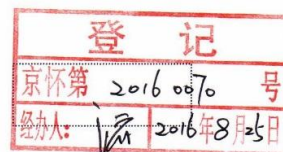 登 记
京怀第 2016 0070 号
经办人: 2016年8月25日